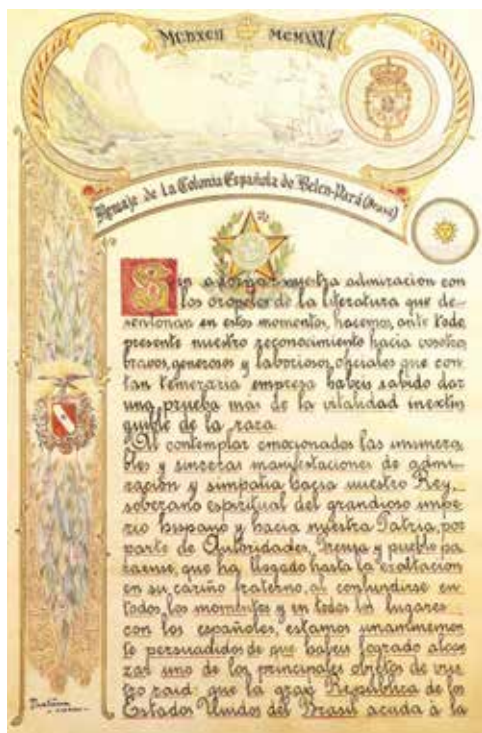 MCDXCII MCMXXVI
Homenaje de la Colonia Española de Belen-Pará (Brasil)
Sin adornar nuestra admiracion con
los oropeles de la literatura que de-
sentonan en estos momentos, hacemos, ante todo,
presente nuestro reconocimiento hacia vosotros
bravos, generosos y laboriosos oficiales que con
tan temeraria empresa habeis sabido dar
una prueba mas de la vitalidad inextin
guible de la raza.
Al contemplar emocionados las innumera
bles y sinceras manifestaciones de admi-
ración y simpatia hacia nuestro Rey,
soberano espiritual del grandioso impe
rio hispano y hacia nuestra Patria, por
parte de Autoridades, Prensa y pueblo pa
raense, que ha llegado hasta la exaltacion
en su cariño fraterno, al confundirse en
todos los momentos y en todos los lugares
con los españoles, estamos unanimemen
te persuadidos de que habeis logrado alcan
zar uno de los principales objetos de vues
tro raid: que la gran República de los
Estados Unidos del Brasil acuda á la